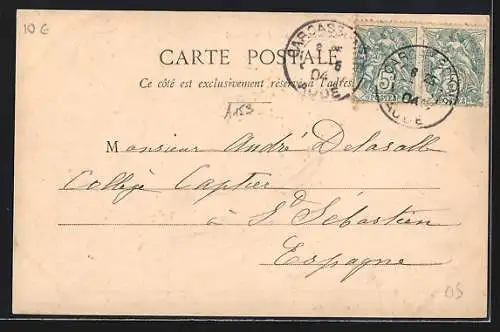 10 €
CARCASSONNE
AUDE
04
CARTE POSTALE
Ce côté est exclusivement réservé à l'adresse
A153
Monsieur André Delasalle
Collège Captier
à St Sébastien
Espagne
OS